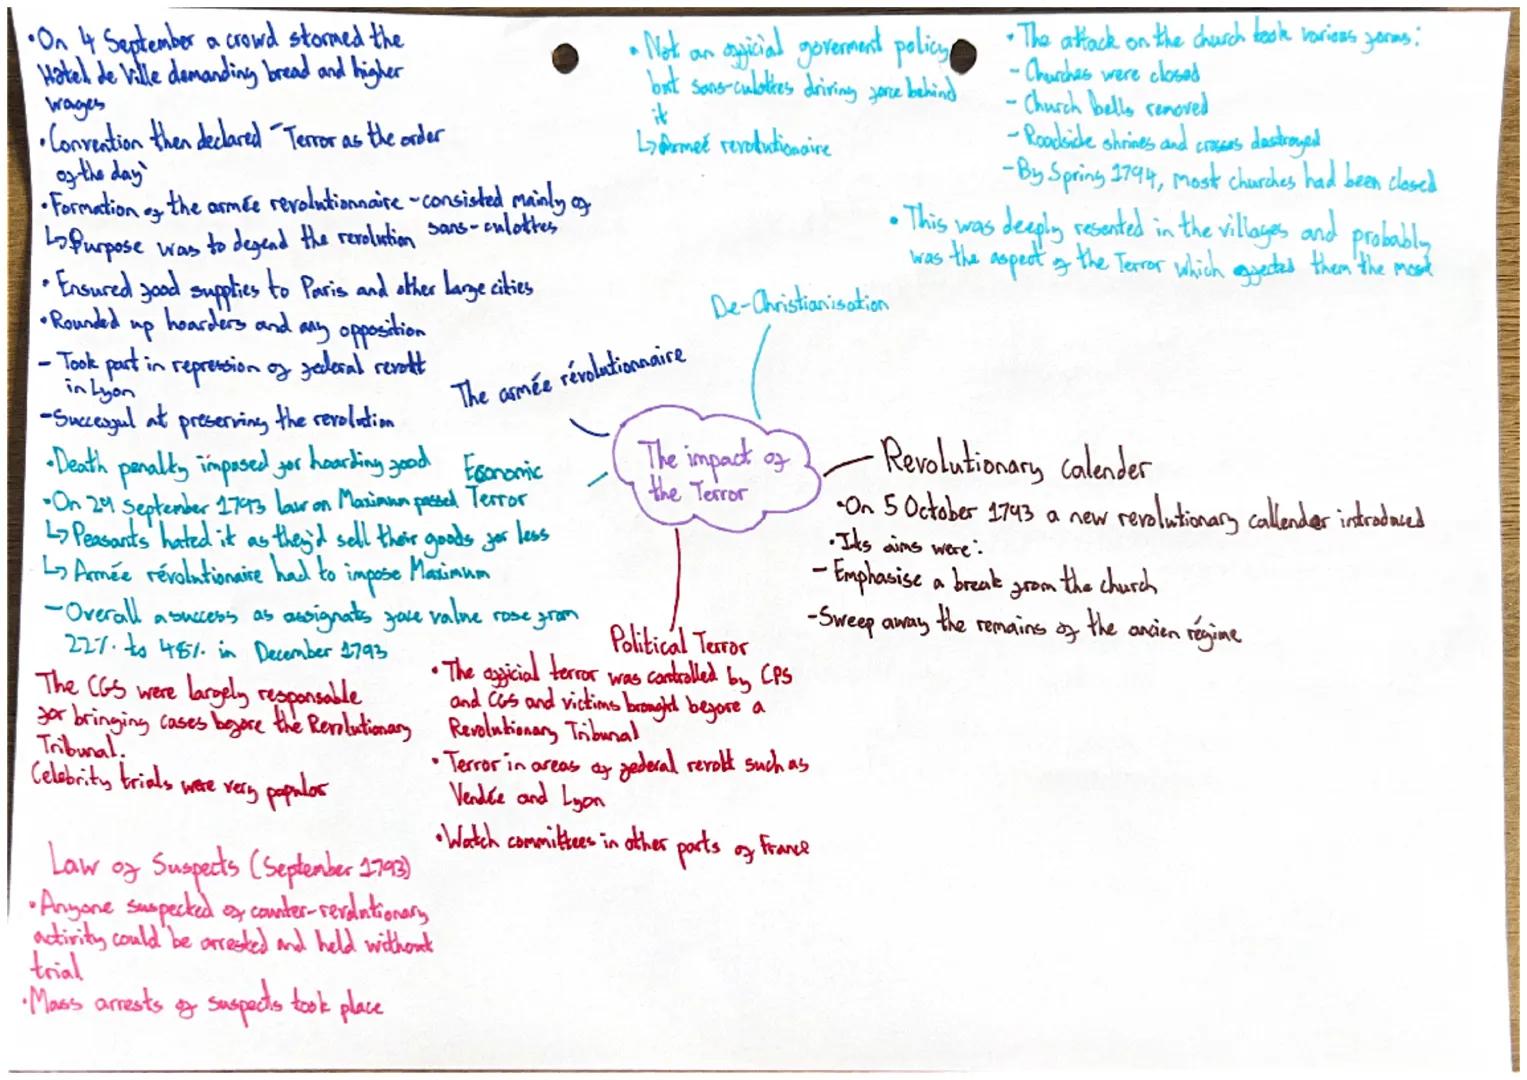 •On 4 September a crowd stormed the
Hôtel de Ville demanding bread and higher
wages
•Convention then declared "Terror as the order
of the day"
•Formation of the armée revolutionnaire - consisted mainly of
sans-culottes
↳Purpose was to defend the revolution
•Ensured food supplies to Paris and other large cities
•Rounded up hoarders and any opposition
- Took part in repression of federal revolt
in Lyon
-Successful at preserving the revolution
The armée révolutionnaire
• Not an official goverment policy
but sans-culottes driving force behind
it
↳Armeé revolutionaire
• The attack on the church took various forms:
- Churches were closed
- Church bells removed
- Roadside shrines and crosses destroyed
-By Spring 1794, most churches had been closed
• This was deeply resented in the villages and probably
was the aspect of the Terror which affected them the most
De-Christianisation
The impact of
the Terror
Economic
Terror
•Death penalty imposed for hoarding food
•On 29 September 1793 law on Maximum passed
↳Peasants hated it as they'd sell their goods for less
↳ Armée révolutionaire had to impose Maximum
- Overall a success as assignats face value rose from
22% to 48% in December 1793
Revolutionary calender
•On 5 October 1793 a new revolutionary callender introduced
•Its aims were:
- Emphasise a break from the church
-Sweep away the remains of the ancien régime
Political Terror
• The official terror was controlled by CPS
and CGS and victims brought before a
Revolutionary Tribunal
• Terror in areas of federal revolt such as
Vendée and Lyon
•Watch committees in other parts of France
The CGS were largely responsable
for bringing cases before the Revolutionary
Tribunal.
Celebrity trials were very popular
Law of Suspects (September 1793)
•Anyone suspected of counter-revolutionary
activity could be arrested and held without
trial
•Mass arrests of suspects took place